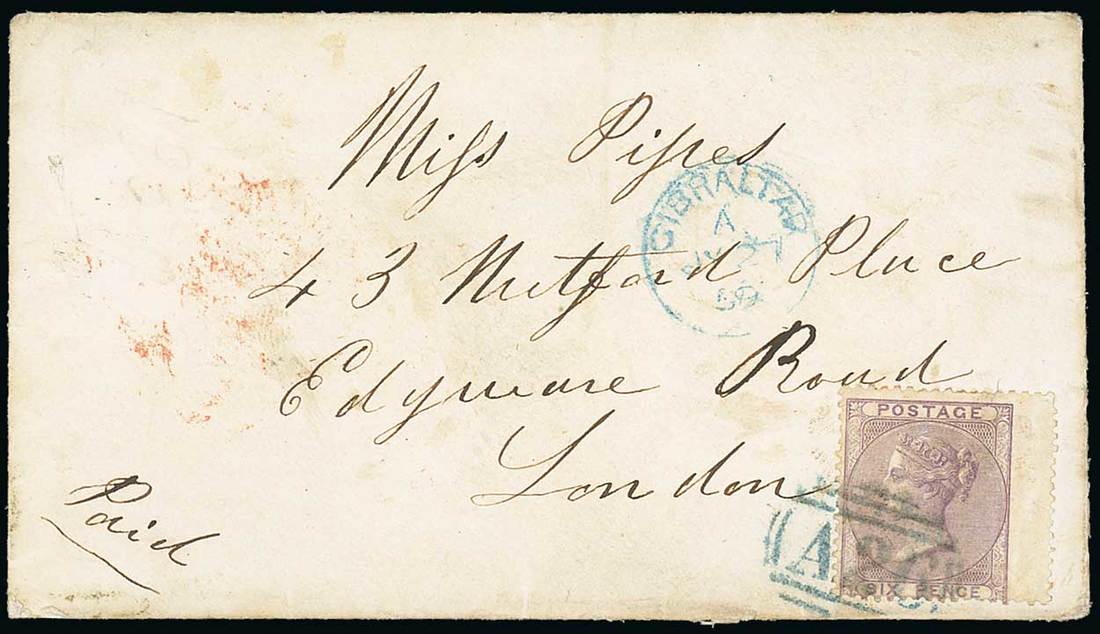 Miss Pipes
GIBRALTAR
A
59
43 Mutford Place
Edgware Road
London
Paid
POSTAGE
SIX PENCE
A26